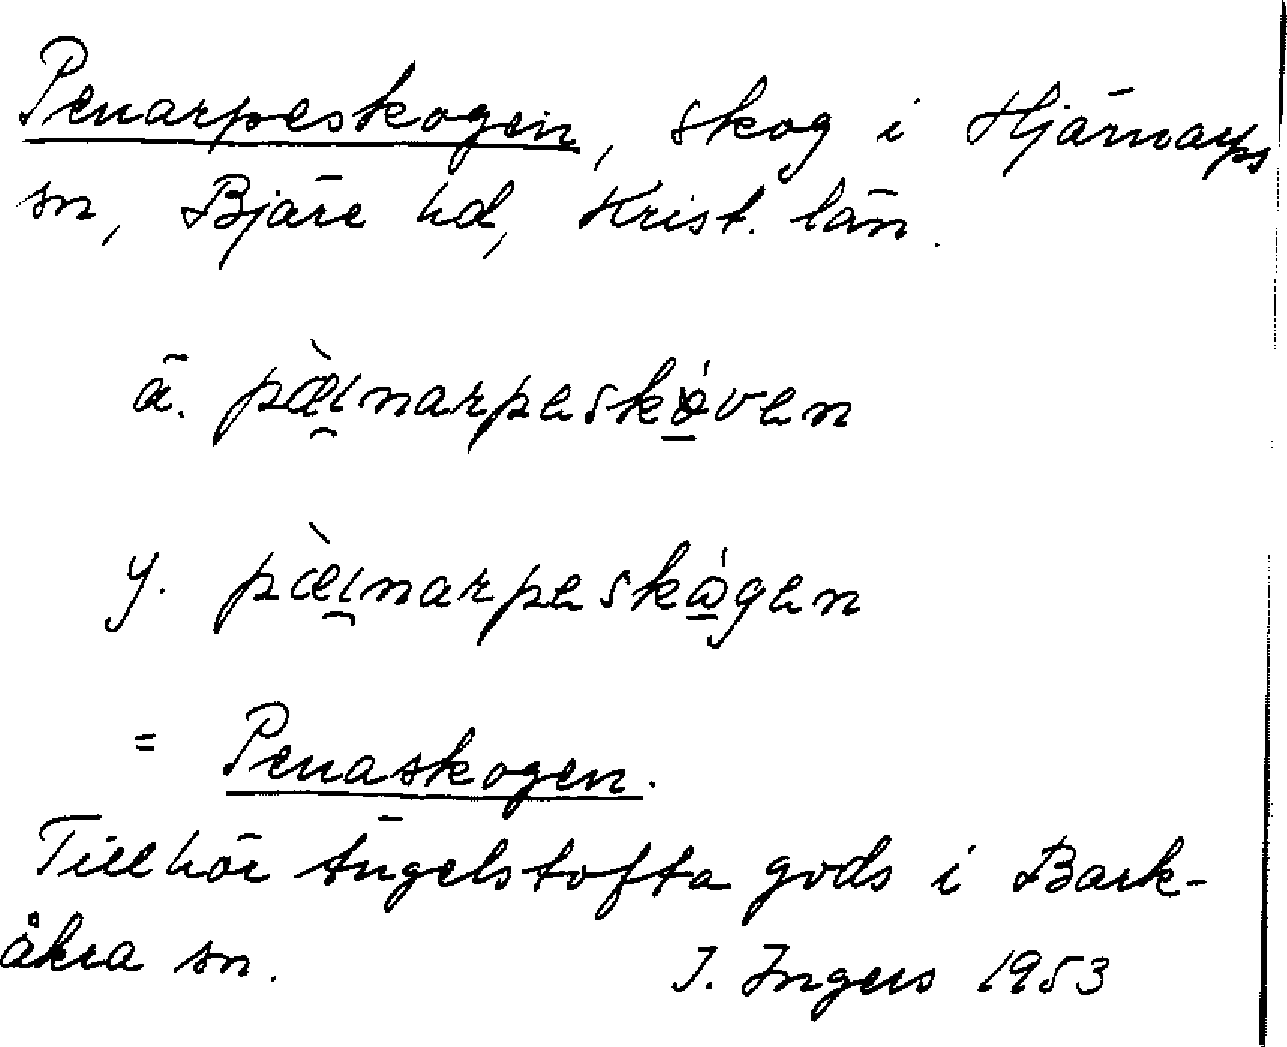 Penarpeskogen, skog i Hjärnarps
sn, Bjäre hd, Krist. län.
ä. pæ̀i̯narpeskǫ́ven
y. pæ̀i̯narpeskǻ̱gen
= Penaskogen.
Tillhör Ängelstofta gods i Bark-
åkra sn. I. Ingers 1953